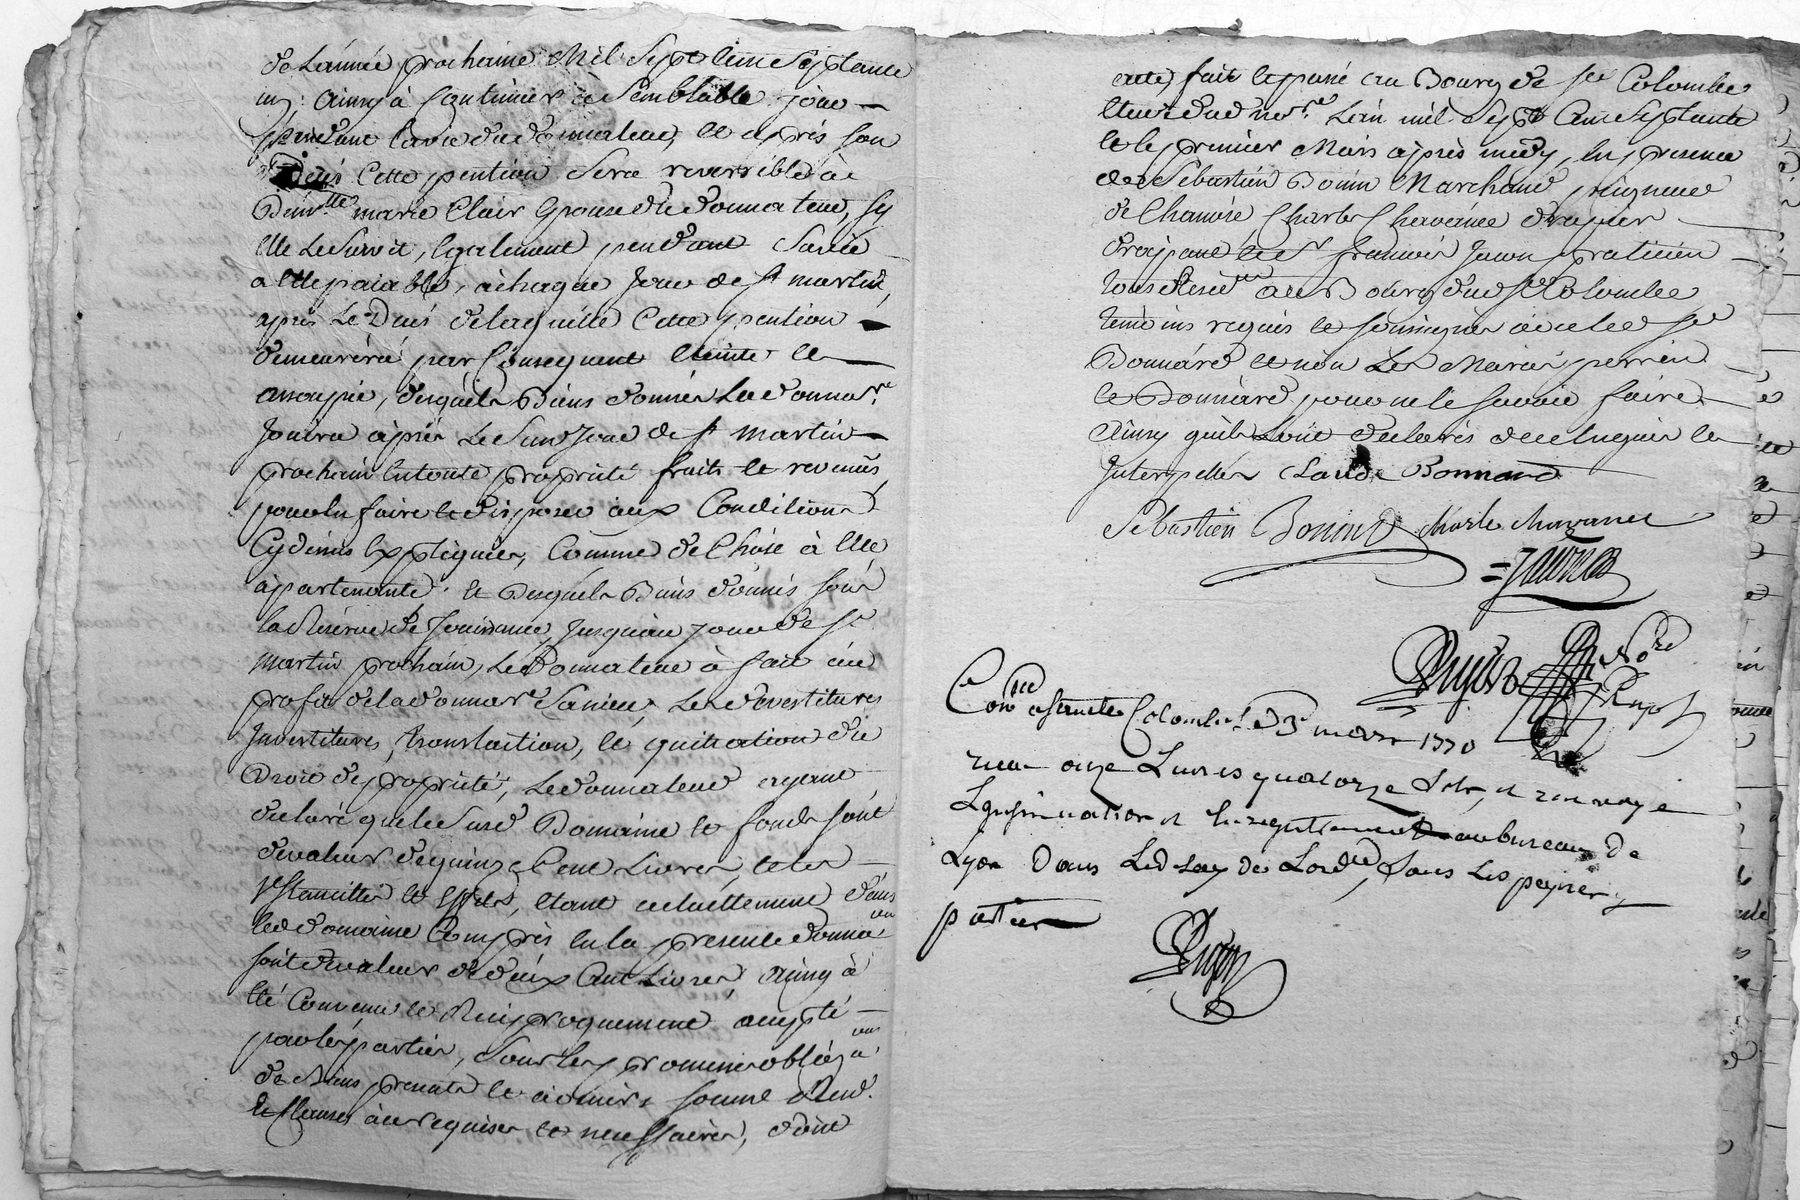 de L'année prochaine Mil Sept Cent Septante
un; ainsy à Continuer à Semblable jour
pendant la vie du donnateur, et après son
Deces Cette pention Sera reversible à
Dem.lle marie Clair Epouse du donnateur, sy
elle Le Survit, Egalement pendant Sa vie
a elle païable, à chaque Jour de st martin,
après Le Deces de laquelle Cette pention
demeurera par Consequent Eteinte et
assoupie, desquels Biens donnés La donna.re
Jouira après Le Susd Jour de st martin
prochain En toute propriété fruits et revenus,
pour En faire et disposer aux Conditions
Cy dessus Expliquées, Comme de Chose à Elle
appartenante. et desquels Biens donnés sous
la Reserve de Jouissance, Jusqu'au jour de st
martin prochain, Le donnateur à fait au
profit de la donnat.re Les devestitures
Investitures, translation, et quittation du
Droit de propriété, Le donnateur ayant
declaré que le Susd Domaine et fonds sont
de valeur de quinze Cent Livres, et les
Bestiaux et Effets, étant actuellement dans
led domaine Compris En la presente donna.on
sont de valeur de deux Cent Livres, ainsy à
été Convenu et Reciproquement accepté
par les parties, Sous les promesses obliga.ons
de Biens presents et avenirs Soum.s Rend.
et Clauses à ce requises et necessaires, dont
acte, fait et passé au Bourg de Ste Colombe
Etude dud no.re L'an mil Sept Cent Septante
et le premier Mars après midy, En presence
de Sebastien Bonin Marchand peigneur
de Chanvre Charles Chavanne drapier
drapant et sr françois Jauson praticien
tous Resid.ts au Bourg dud Ste Colombe
temoins requis et soussignés avec led sr
Bonnard et non Les Mariés perrin
et Bonnard pour ne le savoir faire
Ainsy qu'ils L'ont declaré de ce Enquis et
Interpellés Claude Bonnard
Sebastien Bonin Charle Chavanne
No.re
Con.lle a Sainte Colombe le 3 mars 1770
recu onze Livres quatorze Sols, et renvoyé
L'insinuation et Enregistrement au bureau de
Lyon Dans Led lay de Lord.ce, Sous Les peynes y
portées